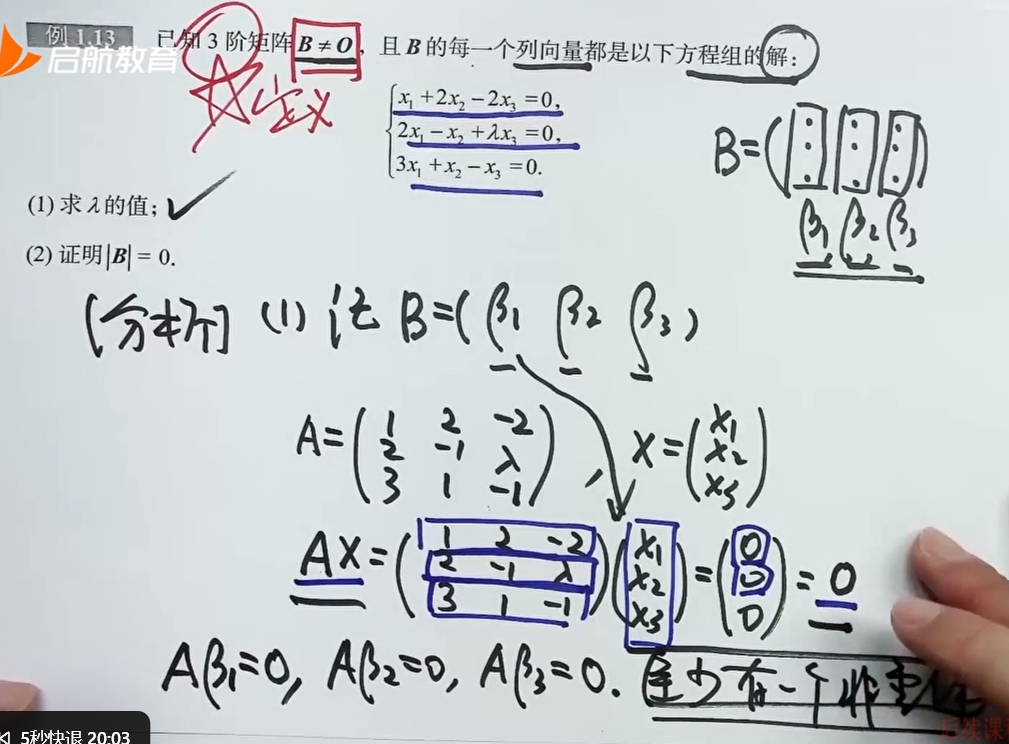 例 1.13 已知 3 阶矩阵 B ≠ O, 且 B 的每一个列向量都是以下方程组的解:
启航教育
定义
x₁ + 2x₂ − 2x₃ = 0,
2x₁ − x₂ + λx₃ = 0,
3x₁ + x₂ − x₃ = 0.
B=( ⋮ ⋮ ⋮ )
β₁ β₂ β₃
(1) 求 λ 的值;
(2) 证明 |B| = 0.
[分析] (1) 记 B=(β₁ β₂ β₃)
A=(1 2 -2
2 -1 λ
3 1 -1), X=(x₁
x₂
x₃)
AX=(1 2 -2
2 -1 λ
3 1 -1)(x₁
x₂
x₃)=(0
0
0)=0
Aβ₁=0, Aβ₂=0, Aβ₃=0. 至少有一个非零
后续课
5秒快退 20:03